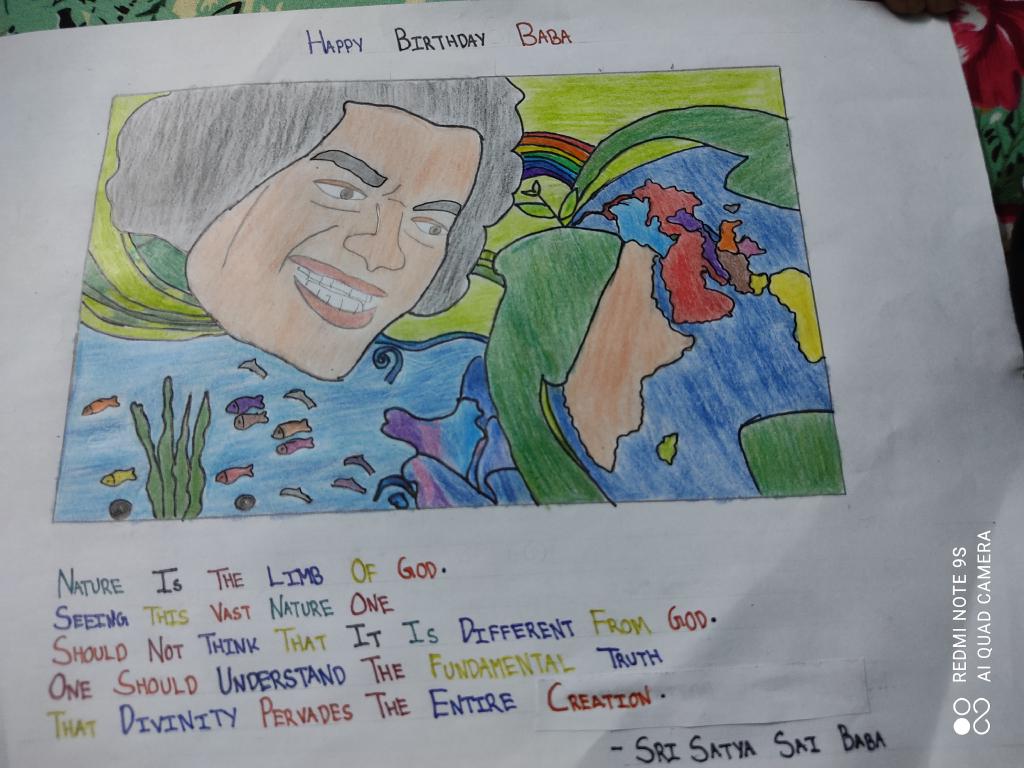 HAPPY BIRTHDAY BABA
NATURE IS THE LIMB OF GOD.
SEEING THIS VAST NATURE ONE
SHOULD NOT THINK THAT IT IS DIFFERENT FROM GOD.
ONE SHOULD UNDERSTAND THE FUNDAMENTAL TRUTH
THAT DIVINITY PERVADES THE ENTIRE CREATION.
- SRI SATYA SAI BABA
REDMI NOTE 9S
AI QUAD CAMERA